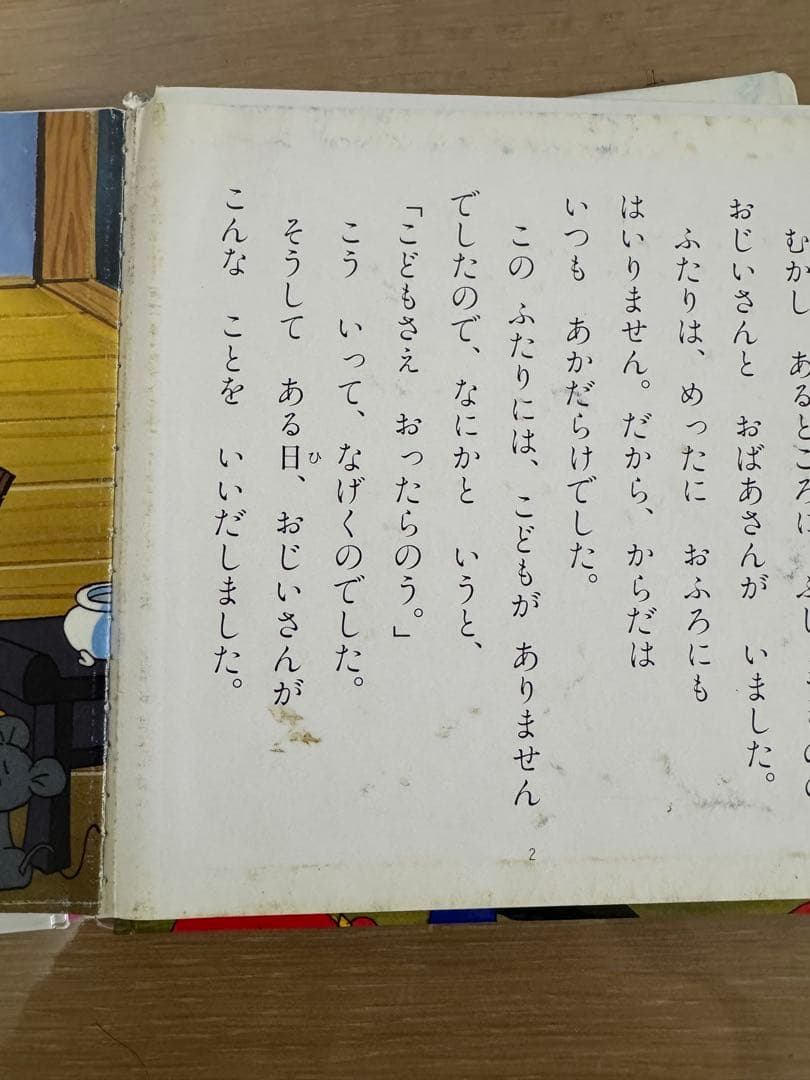 むかし あるところに
おじいさんと おばあさんが いました。
ふたりは、めったに おふろにも
はいりません。だから、からだは
いつも あかだらけでした。
この ふたりには、こどもが ありません
でしたので、なにかと いうと、
「こどもさえ おったらのう。」
こう いって、なげくのでした。
そうして ある日、おじいさんが
ひ
こんな ことを いいだしました。
2